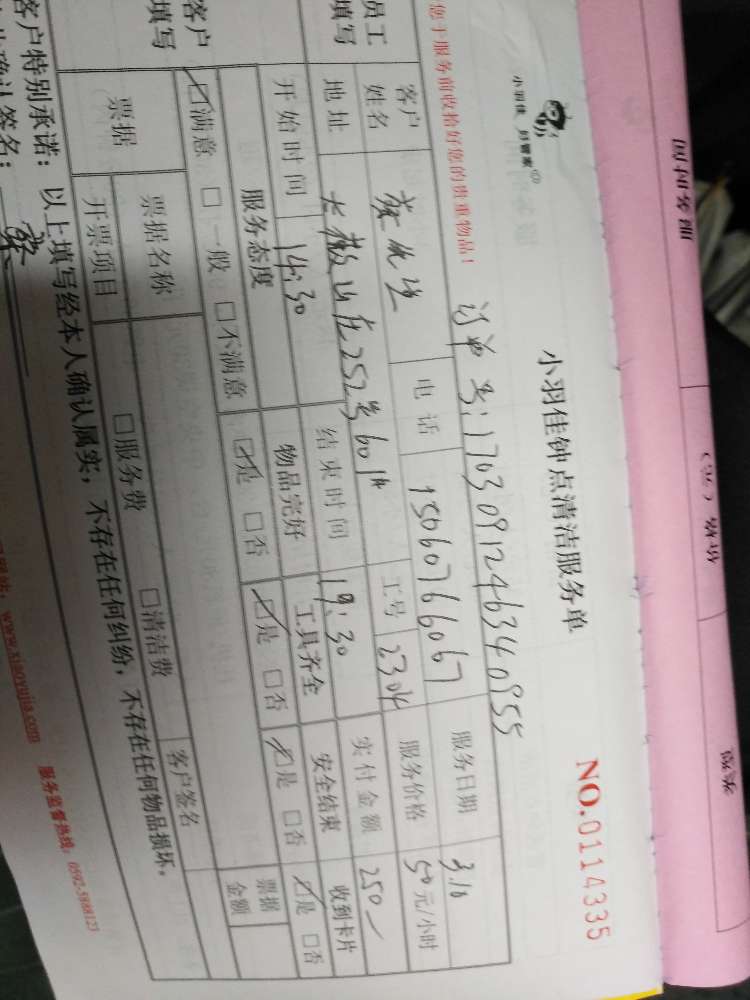 小羽佳 好管家
小羽佳钟点清洁服务单
NO.0114335
您于服务前收拾好您的贵重物品!
订单号:1703091246340955
员工填写
客户姓名
电话 15060766067
服务日期 3.10
地址 252号601#
工号 2304
服务价格 50元/小时
开始时间 14:30
结束时间 19:30
实付金额 250
客户填写
服务态度
物品完好
工具齐全
安全结束
收到卡片
☑满意 □一般 □不满意
☑是 □否
☑是 □否
☑是 □否
☑是 □否
票据
票据名称
□服务费
□清洁费
票据金额
开票项目
客户签名
客户特别承诺:以上填写经本人确认属实,不存在任何纠纷,不存在任何物品损坏。
确认签名:
www.xiaoyujia.com 服务监督热线:0592-5888123